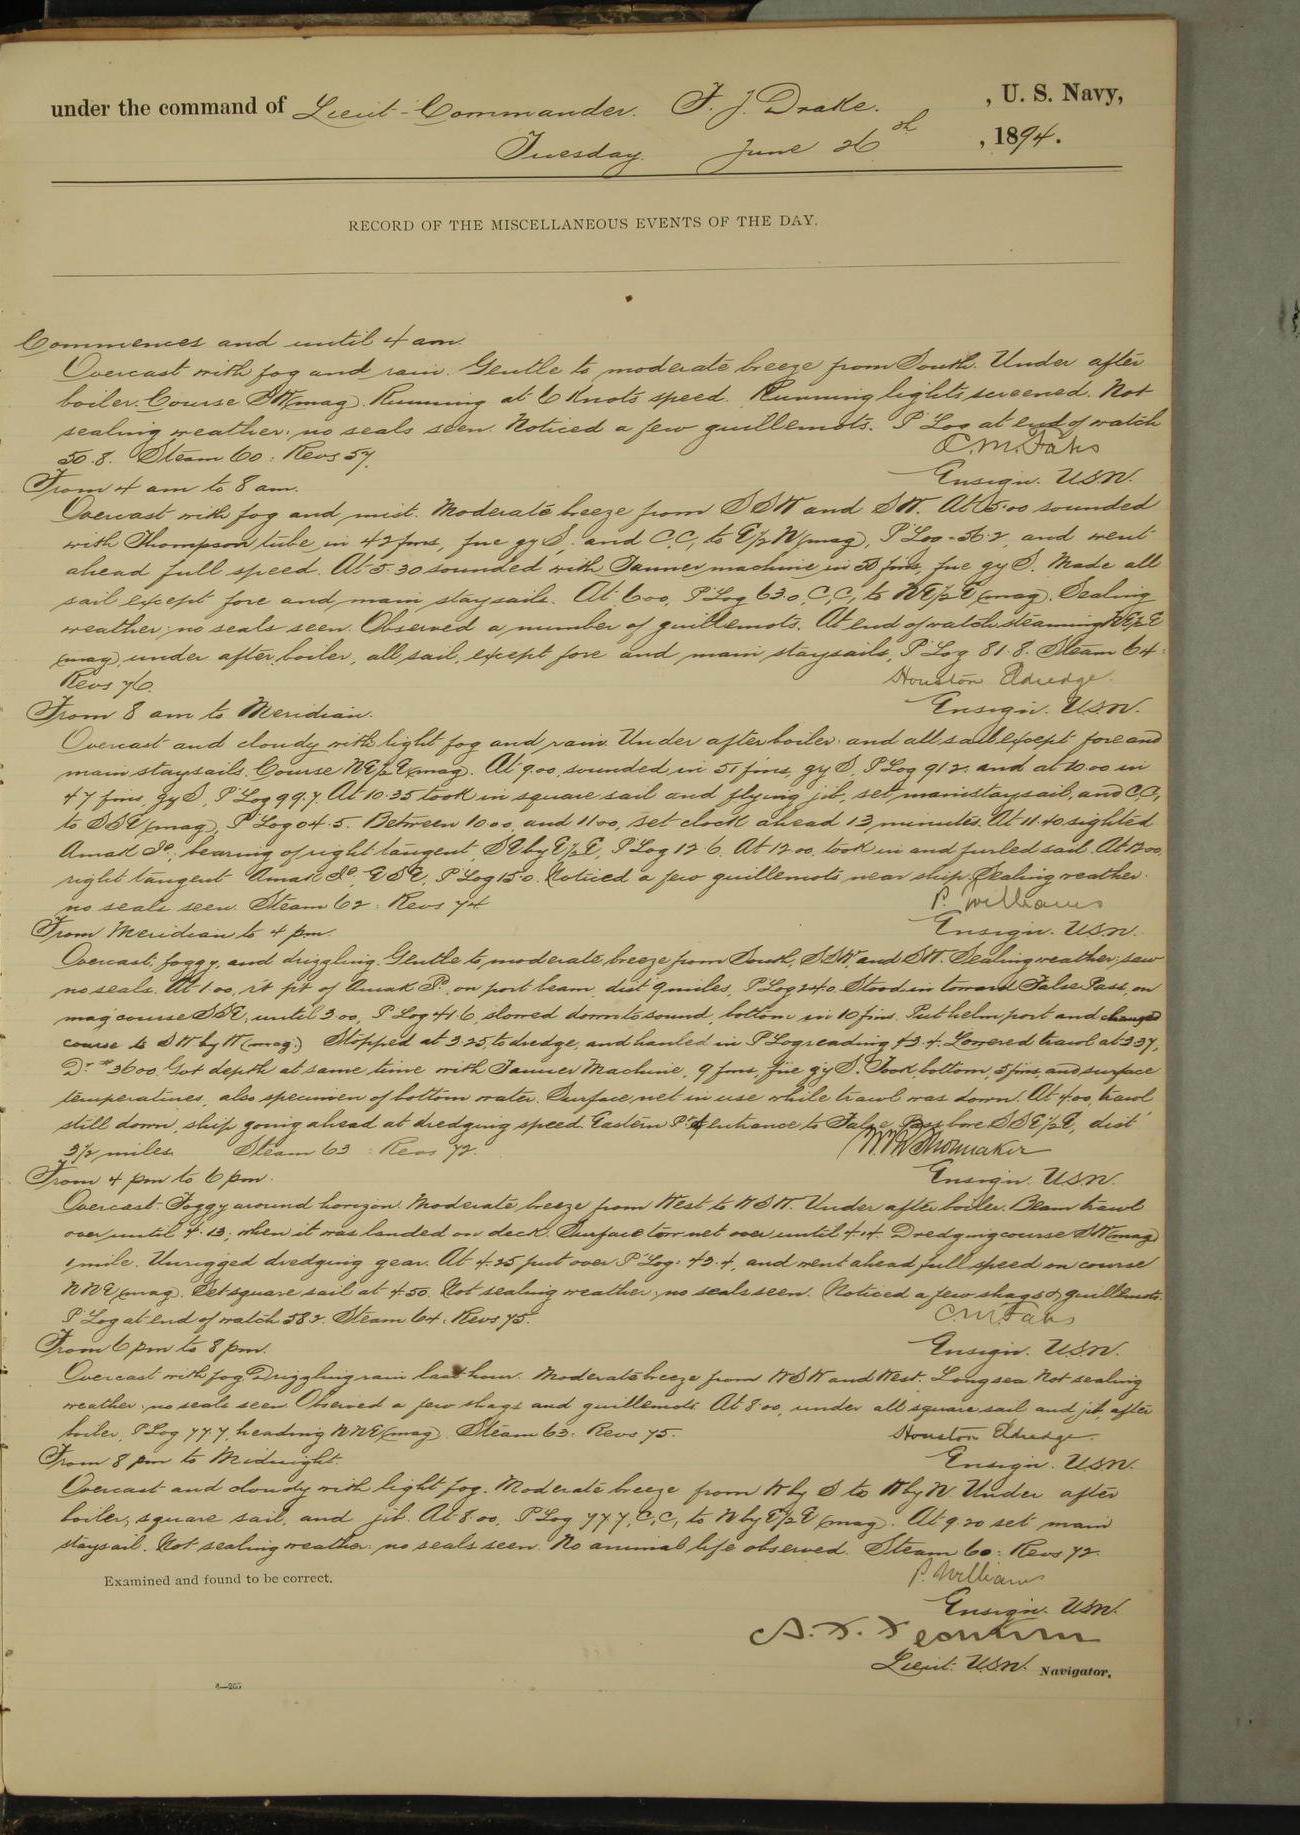 under the command of Lieut-Commander. F. J. Drake. , U. S. Navy,
Tuesday. June 26th , 1894.
RECORD OF THE MISCELLANEOUS EVENTS OF THE DAY.
Commences and until 4 am
Overcast with fog and rain. Gentle to moderate breeze from South. Under after
boiler. Course SW (mag). Running at 6 Knots speed. Running lights screened. Not
sealing weather; no seals seen. Noticed a few guillemots. P. Log at end of watch
50.8. Steam 60: Revs 57.
C. M. Fahs
Ensign. U.S.N.
From 4 am to 8 am.
Overcast with fog and mist. Moderate breeze from SSW and SW. At 5.00 sounded
with Thompson tube in 42 fms, fne gy S. and C.C, to E½N (mag), P. Log 56.2, and went
ahead full speed. At 5.30 sounded with Tanner machine in 50 fms, fne gy S. Made all
sail except fore and main staysails. At 6.00, P. Log 63.0, C,C, to NE½E (mag). Sealing
weather; no seals seen. Observed a number of guillemots. At end of watch steaming NE½E
(mag), under after boiler, all sail, except fore and main staysails, P. Log 81.8. Steam 64:
Revs 76.
Houston Eldredge.
Ensign. U.S.N.
From 8 am to Meridian.
Overcast and cloudy with light fog and rain. Under after boiler and all sail except fore and
main staysails. Course NE½E (mag). At 9.00, sounded in 51 fms, gy S, P. Log 91.2 and at 10.00 in
47 fms, gy S, P. Log 99.7. At 10.35 took in square sail and flying jib, set main staysail, and C.C,
to SSE (mag), P. Log 04.5. Between 10.00, and 11.00, set clock ahead 13 minutes. At 11.40 sighted
Amak Id.; bearing of right tangent, SE by E½E, P. Log 12.6. At 12.00, took in and furled sail. At 12.00,
right tangent Amak Id, ESE, P. Log 15.0. Noticed a few guillemots near ship. Sealing weather:
no seals seen. Steam 62: Revs 74
P. Williams
Ensign. U.S.N.
From Meridian to 4 pm.
Overcast, foggy, and drizzling. Gentle to moderate breeze from South, SSW, and SW. Sealing weather; saw
no seals. At 1.00, rt pt of Amak Id. on port beam, dist 9 miles, P. Log 24.0. Stood in toward False Pass, on
mag course SSE, until 3.00, P. Log 41.6, slowed down to sound, bottom in 10 fms. Put helm port and changed
course to SW by W (mag.) Stopped at 3.25, to dredge, and hauled in P. Log reading 43.4. Lowered trawl at 3.37,
Dr. # 3600. Got depth at same time with Tanner Machine, 9 fms, fne gy S. Took bottom, 5 fms, and surface
temperatures, also specimen of bottom water. Surface net in use while trawl was down. At 4.00, trawl
still down, ship going ahead at dredging speed. Eastern Pt of entrance to False Pass bore SSE½E, dist
3½ miles. Steam 63: Revs 72.
Shoemaker
Ensign. U.S.N.
From 4 pm to 6 pm.
Overcast. Foggy around horizon. Moderate breeze from West to WSW. Under after boiler. Beam trawl
over until 4.13; when it was landed on deck. Surface tow net over until 4.14. Dredging course SW (mag)
1 mile. Unrigged dredging gear. At 4.25 put over P. Log: 43.4, and went ahead full speed on course
NNE (mag). Set square sail at 4.50. Not sealing weather; no seals seen. Noticed a few shags & guillemots.
P. Log at end of watch 58.2. Steam 64: Revs 75.
C. M. Fahs
Ensign. U.S.N.
From 6 pm to 8 pm.
Overcast with fog. Drizzling rain last hour. Moderate breeze from WSW and West. Long sea. Not sealing
weather; no seals seen. Observed a few shags and guillemots. At 8.00, under all square sail and jib, after
boiler, P. Log 77.7, heading NNE (mag). Steam 63: Revs 75.
Houston Eldredge.
Ensign. U.S.N.
From 8 pm to Midnight.
Overcast and cloudy with light fog. Moderate breeze from W by S to W by N. Under after
boiler, square sail, and jib. At 8.00, P. Log 77.7, C, C, to N by E½E (mag). At 9.20 set main
staysail. Not sealing weather; no seals seen. No animal life observed. Steam 60: Revs 72.
P. Williams
Examined and found to be correct.
Ensign. U.S.N.
Lieut. U.S.N. Navigator.